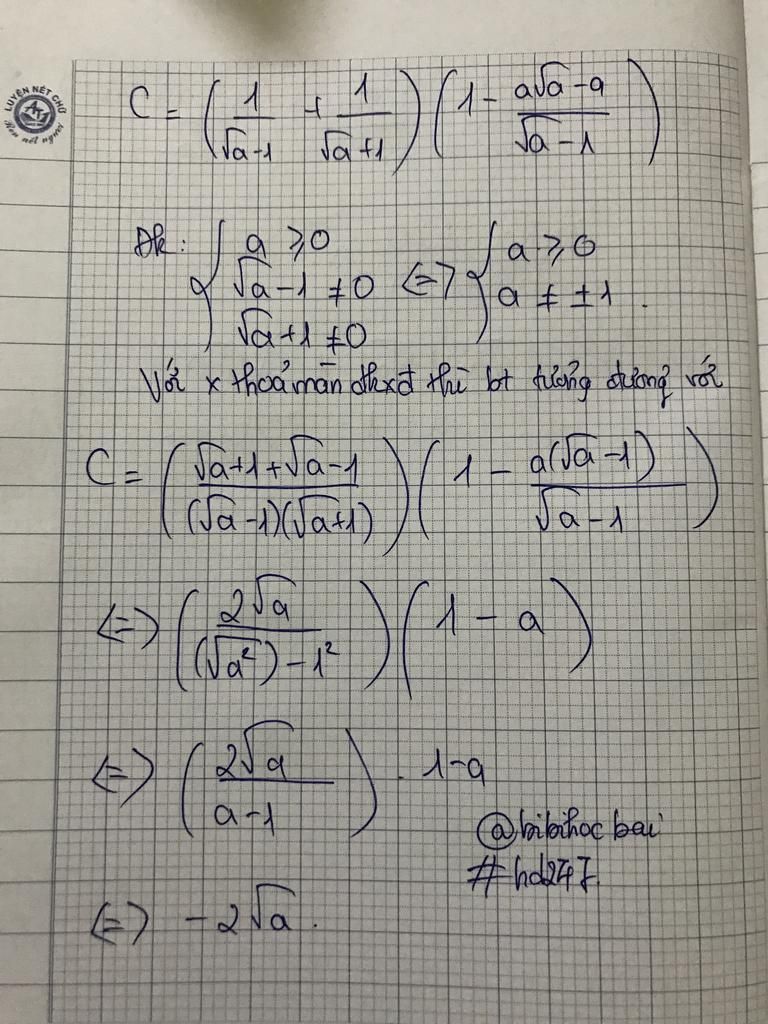 LUYỆN NÉT CHỮ
Rèn nết người
C = (1/(√a-1) + 1/(√a+1)) (1 - (a√a - a)/(√a - 1))
Đk: { a ≥ 0 ; √a - 1 ≠ 0 ; √a + 1 ≠ 0 <=> { a ≥ 0 ; a ≠ ±1 .
Với x thoả mãn đkxđ thì bt tương đương với
C = ((√a+1+√a-1)/((√a-1)(√a+1))) (1 - a(√a-1)/(√a-1))
<=> (2√a/((√a²)-1²)) (1 - a)
<=> (2√a/(a-1)) . 1-a
@bibihocbai
#hd247.
<=> -2√a.